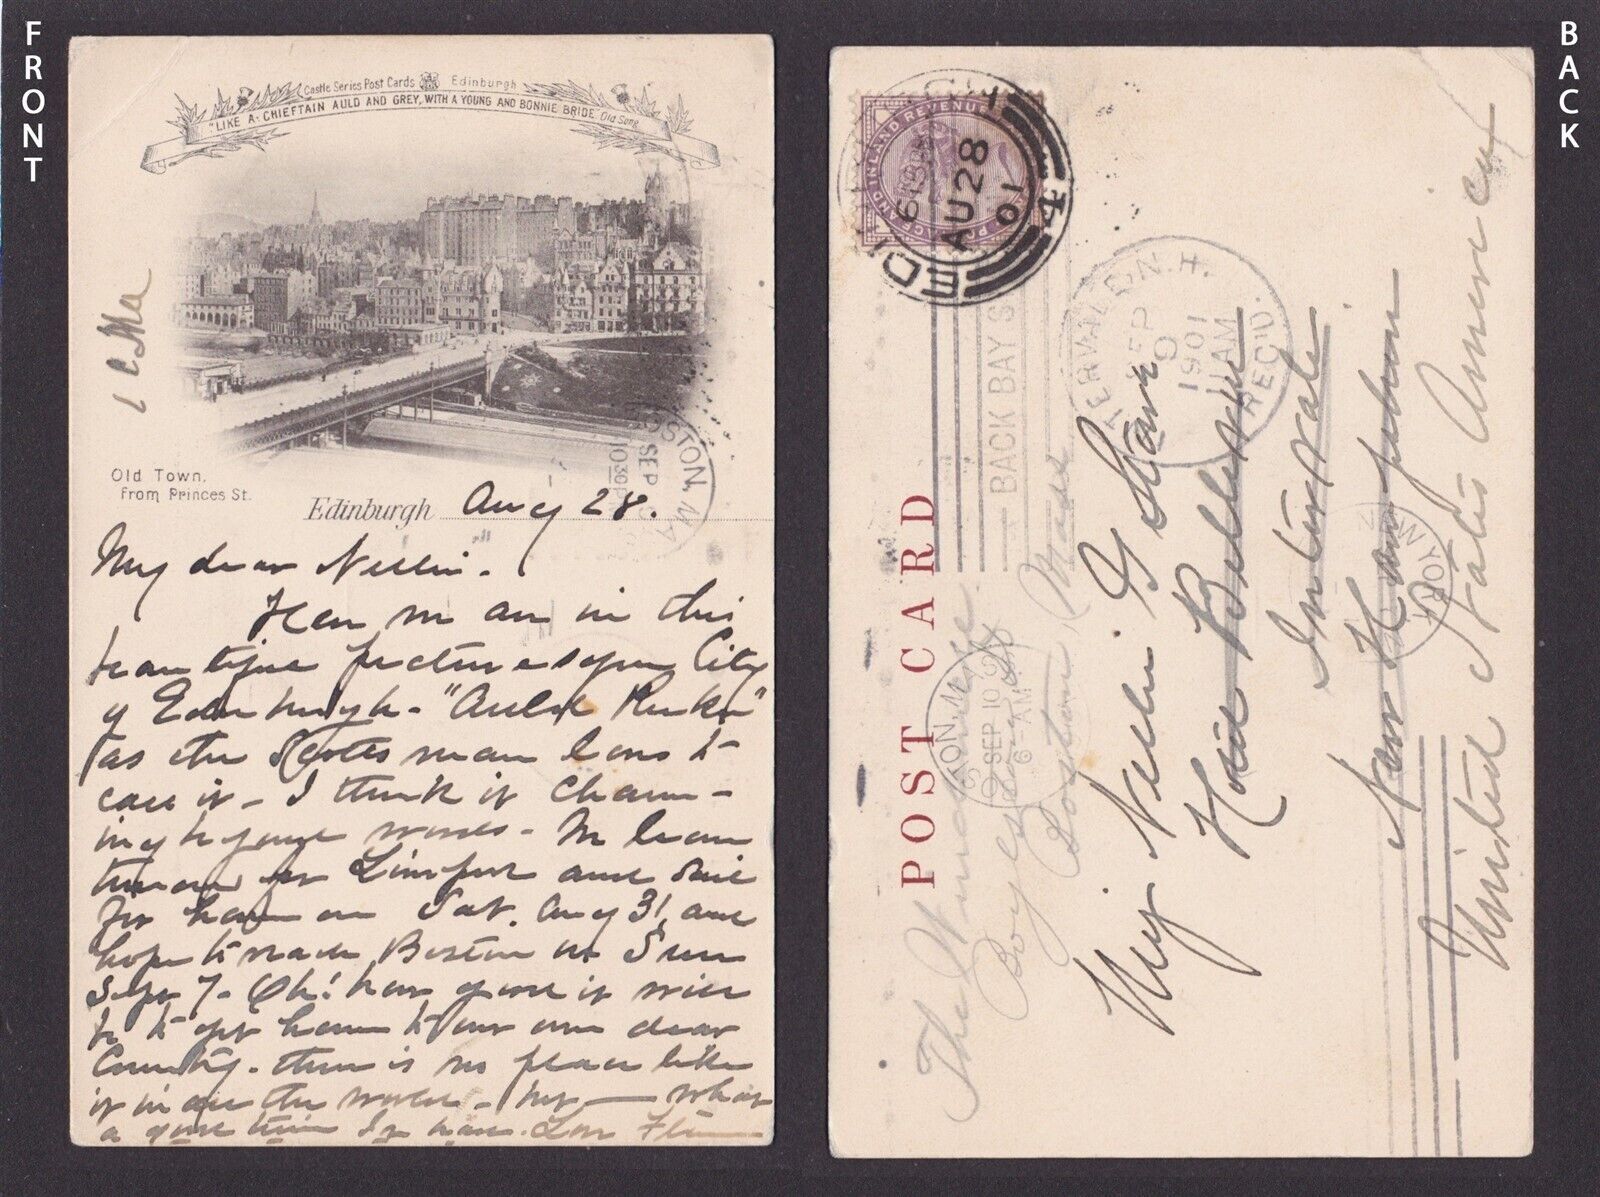 FRONT
Castle Series Post Cards Edinburgh
"LIKE A CHIEFTAIN AULD AND GREY, WITH A YOUNG AND BONNIE BRIDE" Old Song
Old Town,
from Princes St.
BOSTON, MA
SEP
10 30 P
Edinburgh Aug 28.
My dear Nellie.
Here we are in this
beautiful picturesque City
of Edinburgh - "Auld Reekie"
as the Scottsman loves to
call it - I think it charm-
ing beyond words - We leave
tomorrow for Liverpool and sail
for home on Sat. Aug 31, and
hope to reach Boston on Sun
Sept 7 - Oh! how good it will
be to get home to our own dear
Country - there is no place like
it in all the world - but - what
a good time I've had.
BACK
POSTAGE AND INLAND REVENUE
EDINBURGH
AU 28
01
4
INTERVALE, N.H.
SEP
9
1901
11 AM
REC'D.
BACK BAY S
POST CARD
BOSTON, MASS
SEP 10
6 - AM
NEW YORK
Miss Nellie G
Hotel Bellevue
Intervale
New Hampshire
United States America
The Windermere
Boylston
Boston, Mass